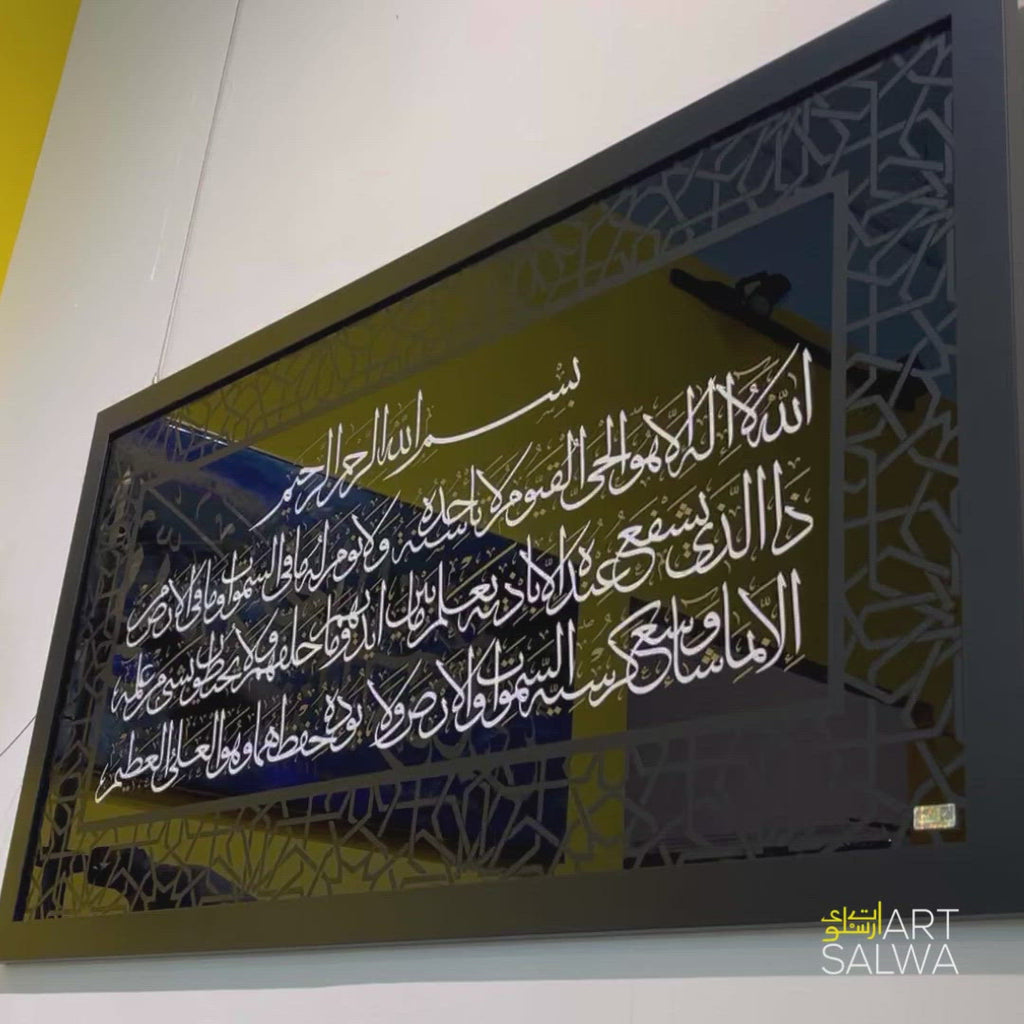 بسم الله الرحمن الرحيم
الله لا اله الا هو الحي القيوم لا تاخذه سنة ولا نوم له ما في السموات وما في الارض من
ذا الذي يشفع عنده الا باذنه يعلم ما بين ايديهم وما خلفهم ولا يحيطون بشيء من علمه
الا بما شاء وسع كرسيه السموات والارض ولا يوده حفظهما وهو العلي العظيم
ارت ART
سلوى SALWA